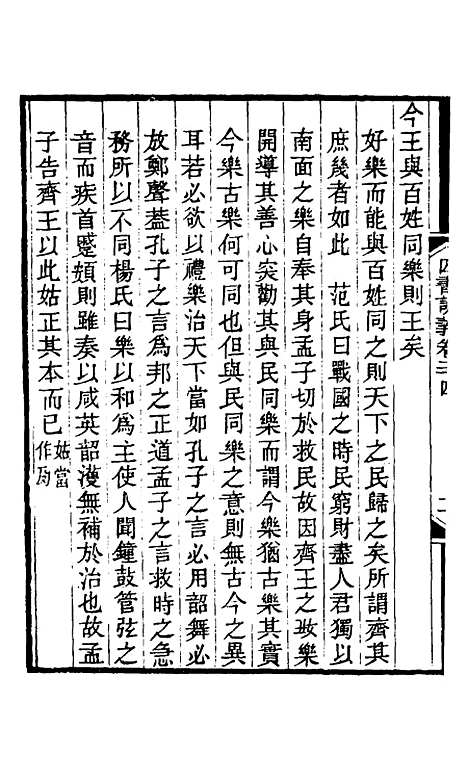 今王與百姓同樂則王矣
好樂而能與百姓同之則天下之民歸之矣所謂齊其
庶幾者如此　范氏曰戰國之時民窮財盡人君獨以
南面之樂自奉其身孟子切於救民故因齊王之好樂
開導其善心深勸其與民同樂而謂今樂猶古樂其實
今樂古樂何可同也但與民同樂之意則無古今之異
耳若必欲以禮樂治天下當如孔子之言必用韶舞必
放鄭聲葢孔子之言為邦之正道孟子之言救時之急
務所以不同楊氏曰樂以和為主使人聞鐘鼓管弦之
音而疾首蹙頞則雖奏以咸英韶濩無補於治也故孟
子告齊王以此姑正其本而已
姑當
作因
四書
卷三四
二